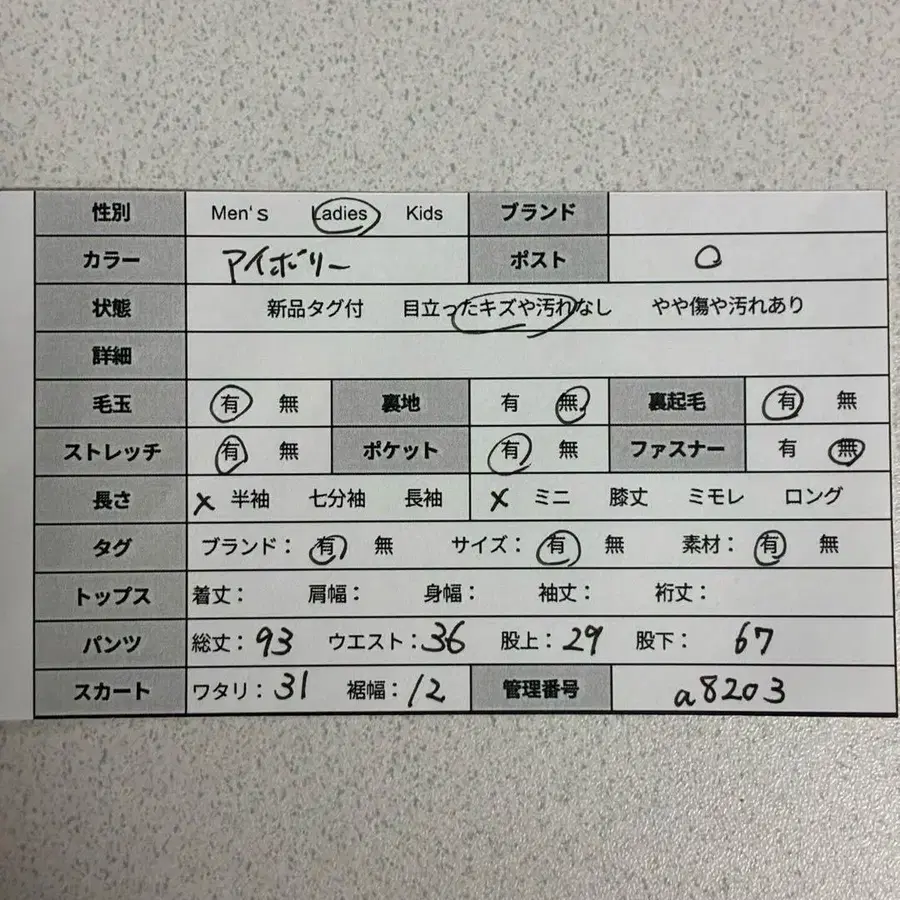 性別 Men's Ladies Kids ブランド
カラー アイボリー ポスト ○
状態 新品タグ付 目立ったキズや汚れなし やや傷や汚れあり
詳細
毛玉 有 無 裏地 有 無 裏起毛 有 無
ストレッチ 有 無 ポケット 有 無 ファスナー 有 無
長さ × 半袖 七分袖 長袖 × ミニ 膝丈 ミモレ ロング
タグ ブランド： 有 無 サイズ： 有 無 素材： 有 無
トップス 着丈： 肩幅： 身幅： 袖丈： 裄丈：
パンツ 総丈：93 ウエスト：36 股上：29 股下： 67
スカート ワタリ：31 裾幅：12 管理番号 a8203